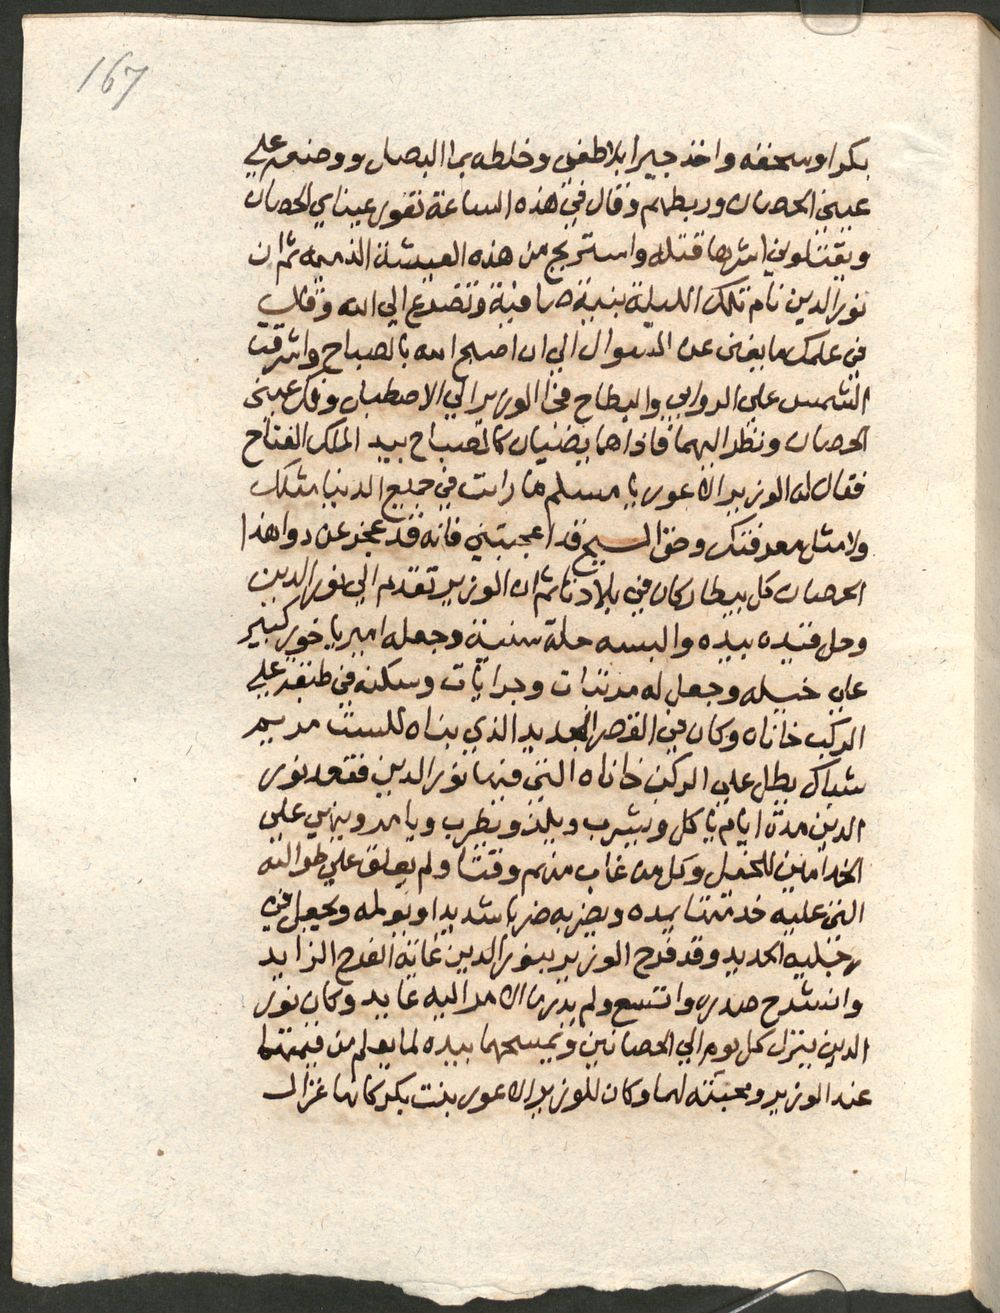 167
بكرا وسحقه واخذ جيرا بلا طفي وخلطه بما البصل ووضعه علي
عيني الحصان وربطهم وقال في هذه الساعة تغور عيناي الحصان
ويقتلوني اشرها قتله واستريح من هذه العيشة الذميمه ثم ان
نور الدين نام تلك الليلة بنية صافية وتضرع الي الله وقال
في علمك ما يغني عن السوال الي ان اصبح الله بالصباح واشرقت
الشمس علي الروابي والبطاح فجا الوزير الي الاصطبل وفك عيني
الحصان ونظر اليهما فاذا هما يضئيان كالمصباح بيد الملك الفتاح
فقال له الوزير الاعور يا مسلم ما رايت في جميع الدنيا مثلك
ولا مثل معرفتك وحق المسيح قد اعجبتني فانه قد عجز عن دوا هذا
الحصان كل بيطار كان في بلادنا ثم ان الوزير تقدم الي نور الدين
وحل قيده بيده والبسه حلة سنية وجعله امير ياخور كبير
علي خيله وجعل له مرتبات وجرايات وسكنه في طبقه علي
الركب خاناه وكان في القصر الجديد الذي بناه للست مريم
شباك يطل علي الركب خاناه التي فيها نور الدين فقعد نور
الدين مدة ايام ياكل ويشرب ويلذ ويطرب ويامر وينهي علي
الخدامين للخيل وكل من غاب منهم وقتا ولم يعلق علي طوالته
التي عليه خدمتها يمده ويضربه ضربا شديدا ويولمه ويجعل في
رجليه الحديد وقد فرح الوزير بنور الدين غاية الفرح الزايد
وانشرح صدره واتسع ولم يدر ما الامر اليه عايد وكان نور
الدين ينزل كل يوم الي الحصانين ويمسحهما بيده لما يعلم من قيمتهما
عند الوزير ومحبته لهما وكان للوزير الاعور بنت بكر كانها غزال